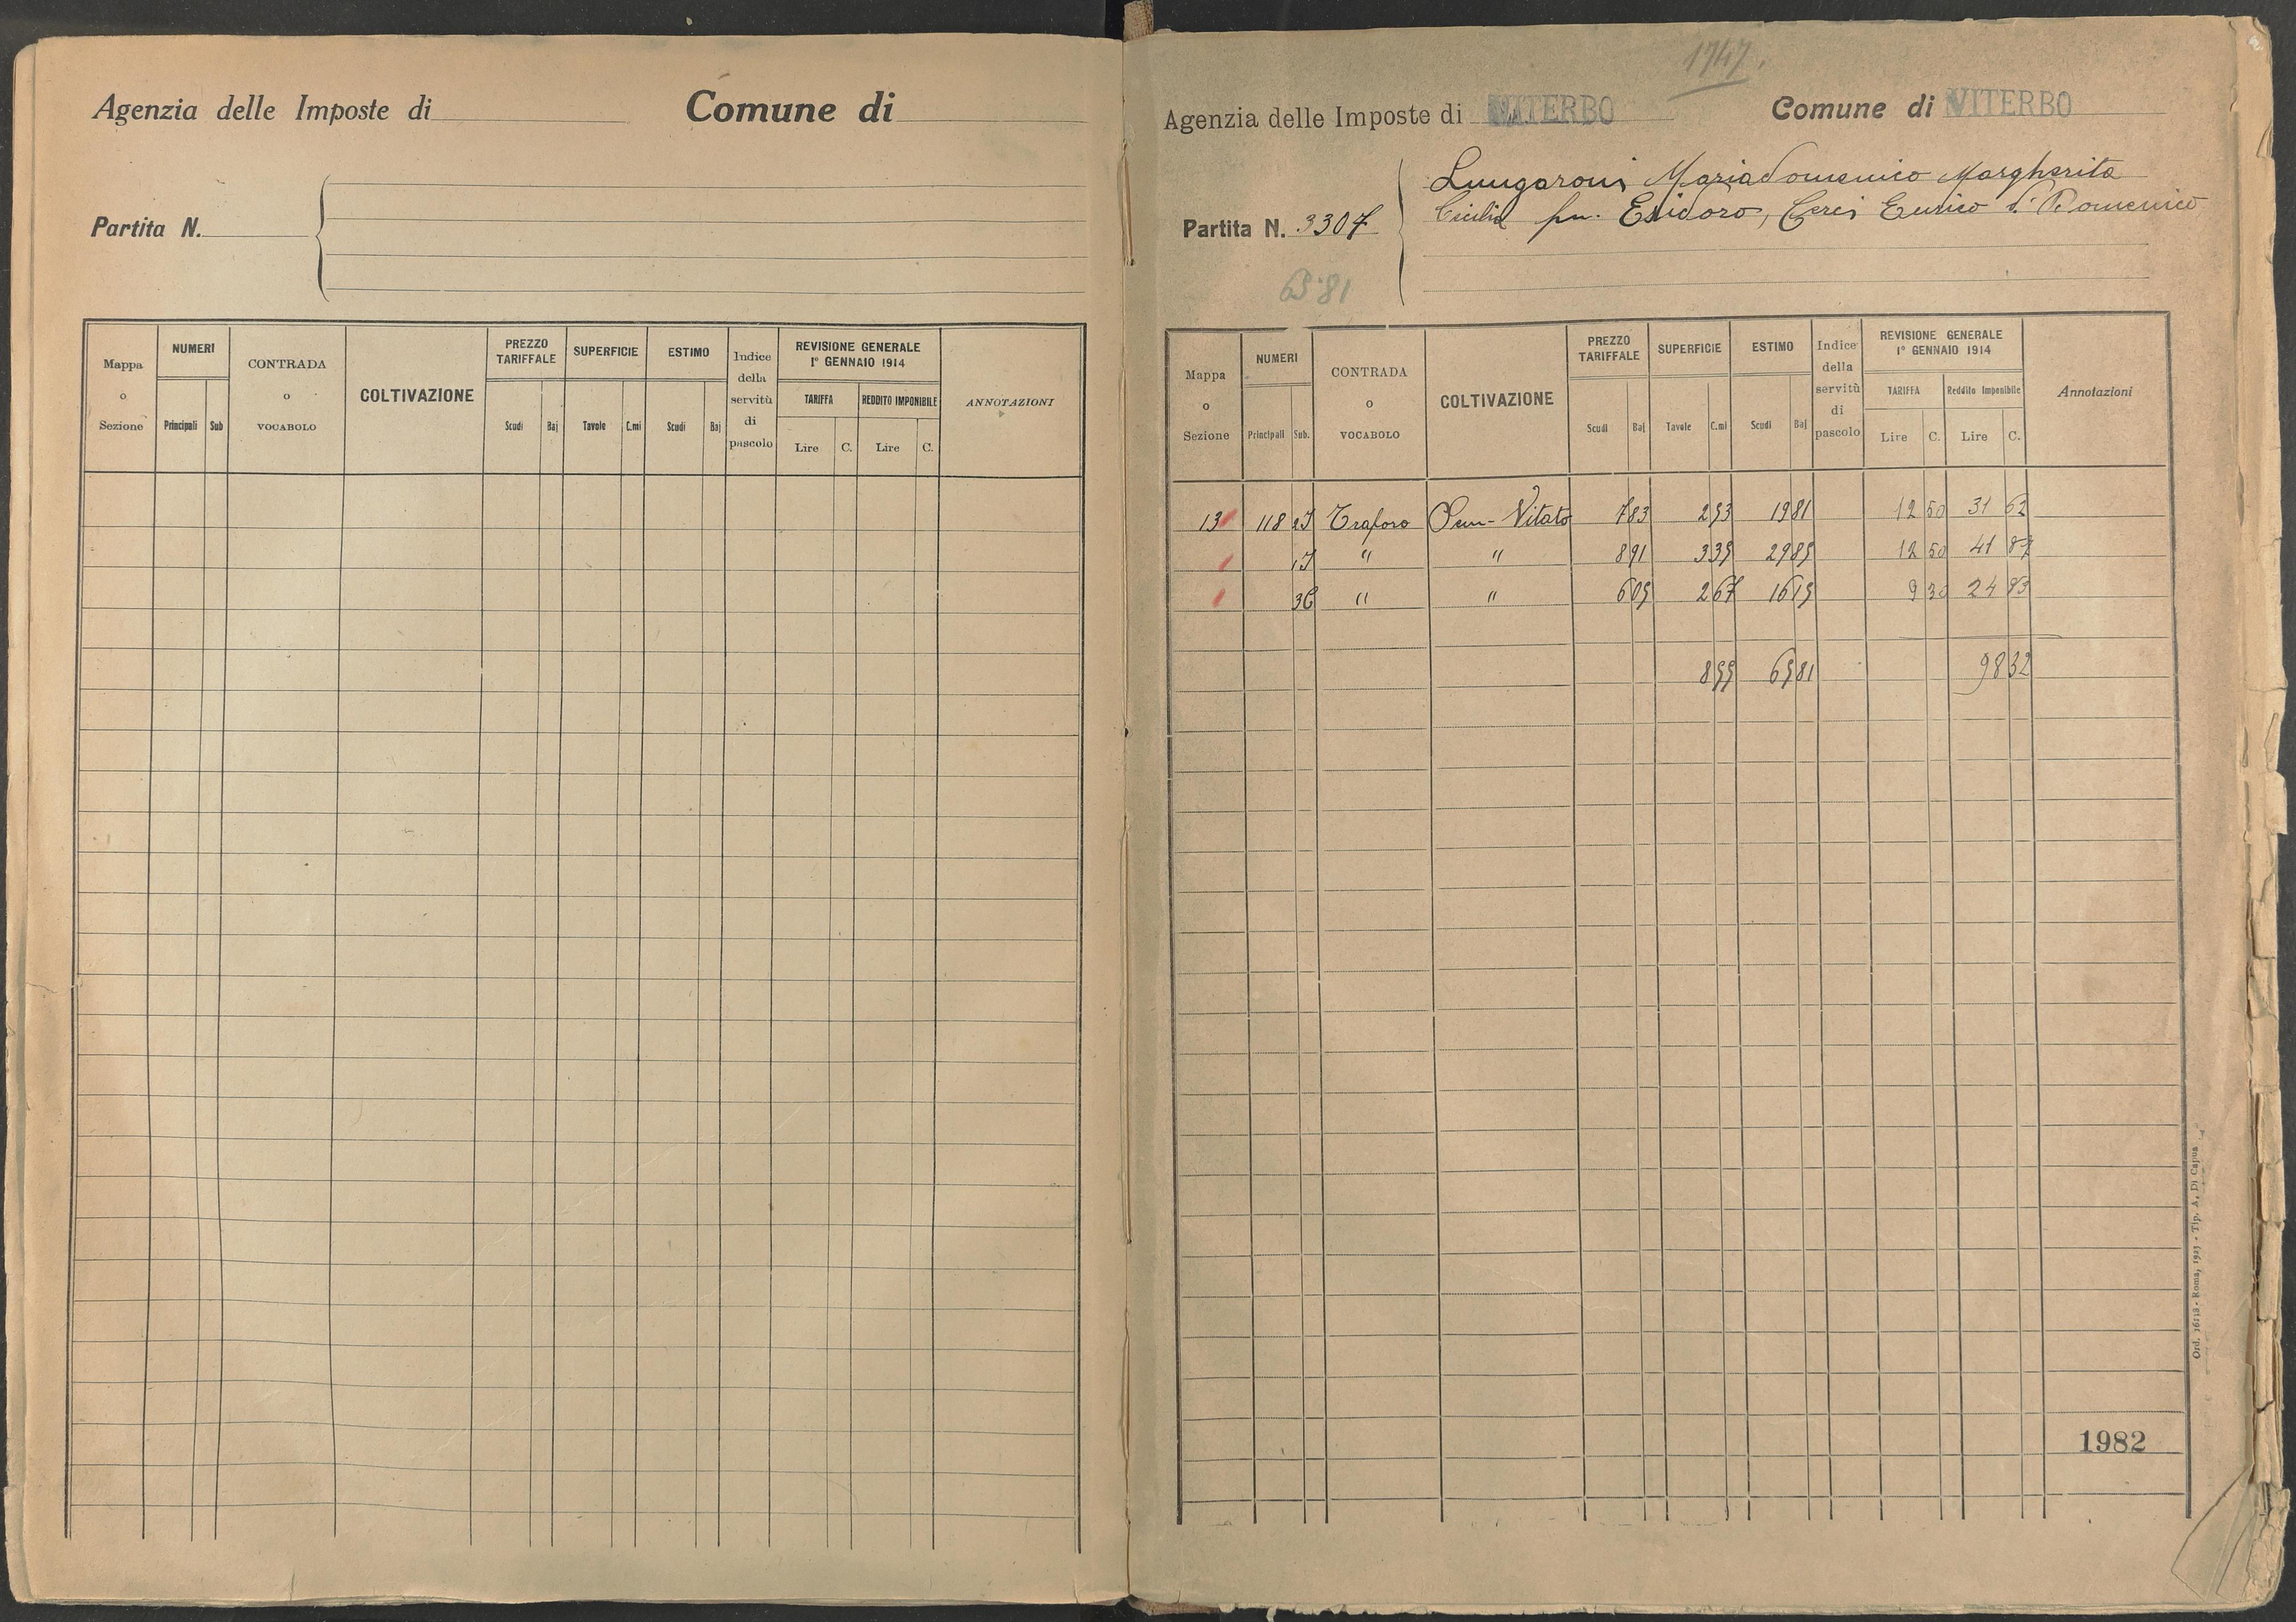 Agenzia delle Imposte di Comune di
Partita N.
Mappa o Sezione NUMERI Principali Sub CONTRADA o VOCABOLO COLTIVAZIONE PREZZO TARIFFALE Scudi Baj SUPERFICIE Tavole C.mi ESTIMO Scudi Baj Indice della servitù di pascolo REVISIONE GENERALE 1° GENNAIO 1914 TARIFFA Lire C. REDDITO IMPONIBILE Lire C. ANNOTAZIONI
1747.
Agenzia delle Imposte di VITERBO Comune di VITERBO
Lungaroni Mariadomenico Margherita
Cicilia fu. Esidoro, Cerei Eurico d. Domenico
Partita N. 3307
Mappa o Sezione NUMERI Principali Sub. CONTRADA o VOCABOLO COLTIVAZIONE PREZZO TARIFFALE Scudi Baj SUPERFICIE Tavole C.mi ESTIMO Scudi Baj Indice della servitù di pascolo REVISIONE GENERALE 1° GENNAIO 1914 TARIFFA Lire C. Reddito Imponibile Lire C. Annotazioni
13 118 Traforo Sem- Vitato 7 83 2 53 19 81 12 50 31 62
" " 8 91 3 35 29 85 12 50 41 87
" " 6 05 2 67 16 15 9 30 24 83
8 55 65 81 98 32
Ord. 16118 - Roma, 1923 - Tip. A. Di Capua
1982